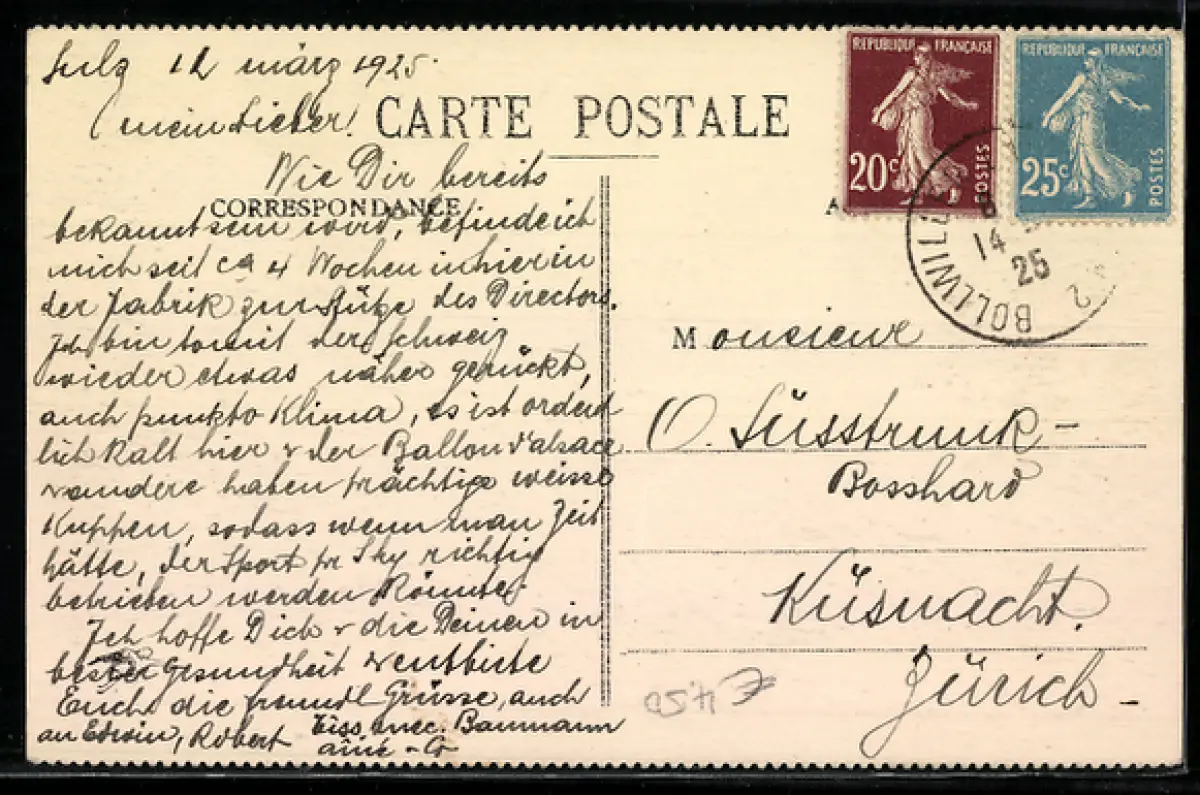 Sulz 12 märz 1925.
Mein Lieber!
CARTE POSTALE
Wie Dir bereits
CORRESPONDANCE
bekannt sein wird, befinde ich
mich seit ca 4 Wochen in hier in
der Fabrik zur Stütze des Directors.
Ich bin somit der Schweiz
wieder etwas näher gerückt,
auch punkto Klima, es ist ordent-
lich kalt hier & der Ballon d'alsace
& andere haben prächtige weisse
Kuppen, sodass wenn man Zeit
hätte, der Sport pr Sky richtig
betrieben werden könnte.
Ich hoffe Dich & die Deinen in
bester Gesundheit & entbiete
Euch die freundl Grüsse, auch
an Edwin, Robert
Tiss. mec. Baumann
ainé & Co
REPUBLIQUE FRANÇAISE
20c
POSTES
REPUBLIQUE FRANÇAISE
25c
POSTES
BOLLWILLER
14
25
Monsieur
O. Süsstrunk-
Bosshard
Küsnacht.
Zürich-